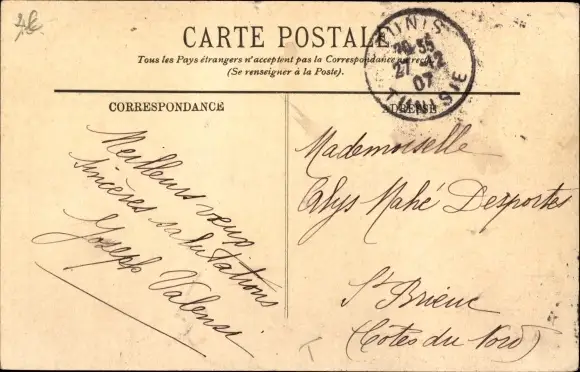 4€
CARTE POSTALE
Tous les Pays étrangers n'acceptent pas la Correspondance au recto
(Se renseigner à la Poste).
TUNIS
20 55
27 -12
07
TUNISIE
CORRESPONDANCE
Meilleurs vœux
sincères salutations
Joseph Valensi
ADRESSE
Mademoiselle
Alys Mahé Desportes
St Brieuc
(Côtes du Nord)